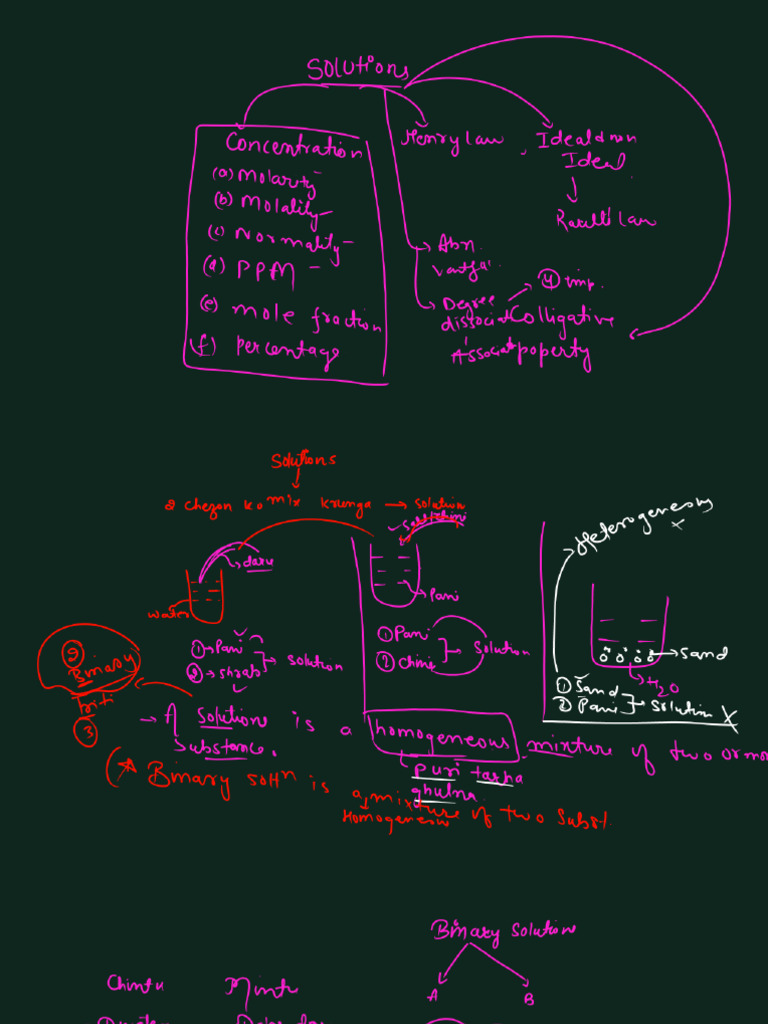 Solutions
Concentration
(a) Molarity
(b) Molality
(c) Normality
(d) PPM
(e) mole fraction
(f) percentage
Henry law
, Ideal & non
Ideal
Raoult's law
Abn.
④ imp.
Degree
dissociat
Associat
Colligative
poperty
Solutions
2 chezon ko mix krunga → solution
water
daru
① → Pani
② → shrab
→ solution
Pani
① Pani
② Chini
→ Solution
Heterogeneous
x
sand
H2O
① Sand
② Pani
→ solution X
② Binary
Triti
③
→ A Solution is a homogeneous mixture of two or mo
Substance.
puri tarha
ghulna
★ Binary solⁿ is a mixture of two Subst.
Homogeneous
Binary Solution
A B
Chintu Mintu